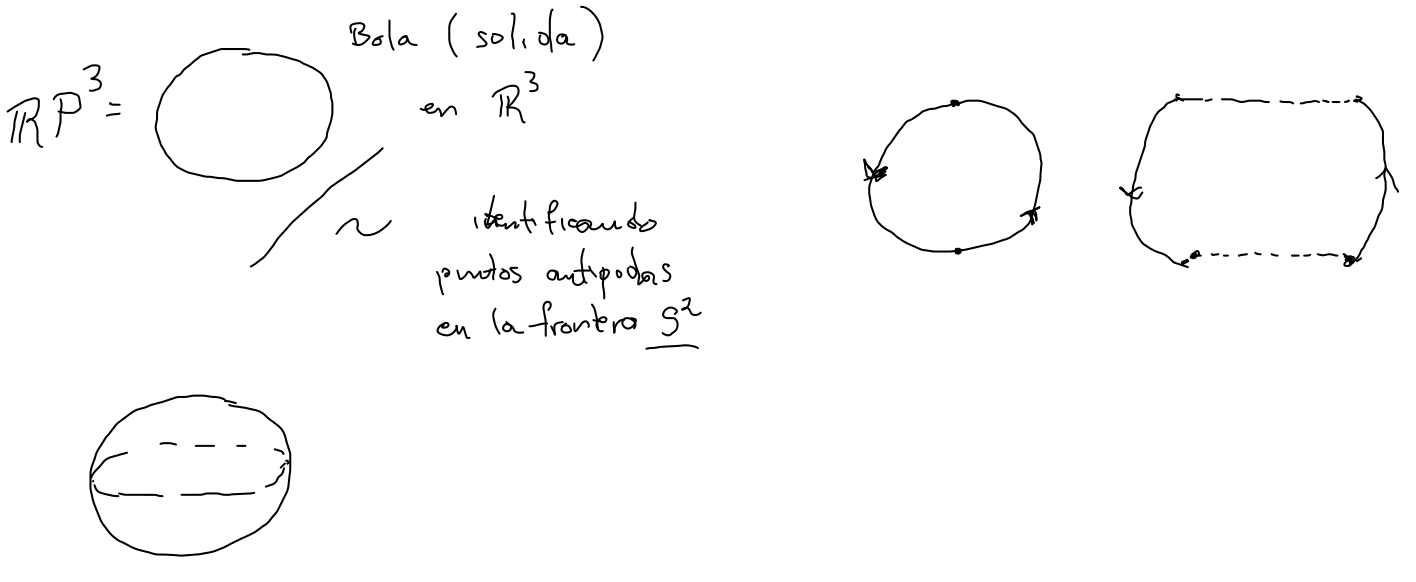 Bola (solida)
ℝP³ =
en ℝ³
/ ~
identificando
puntos antipodas
en la frontera S²